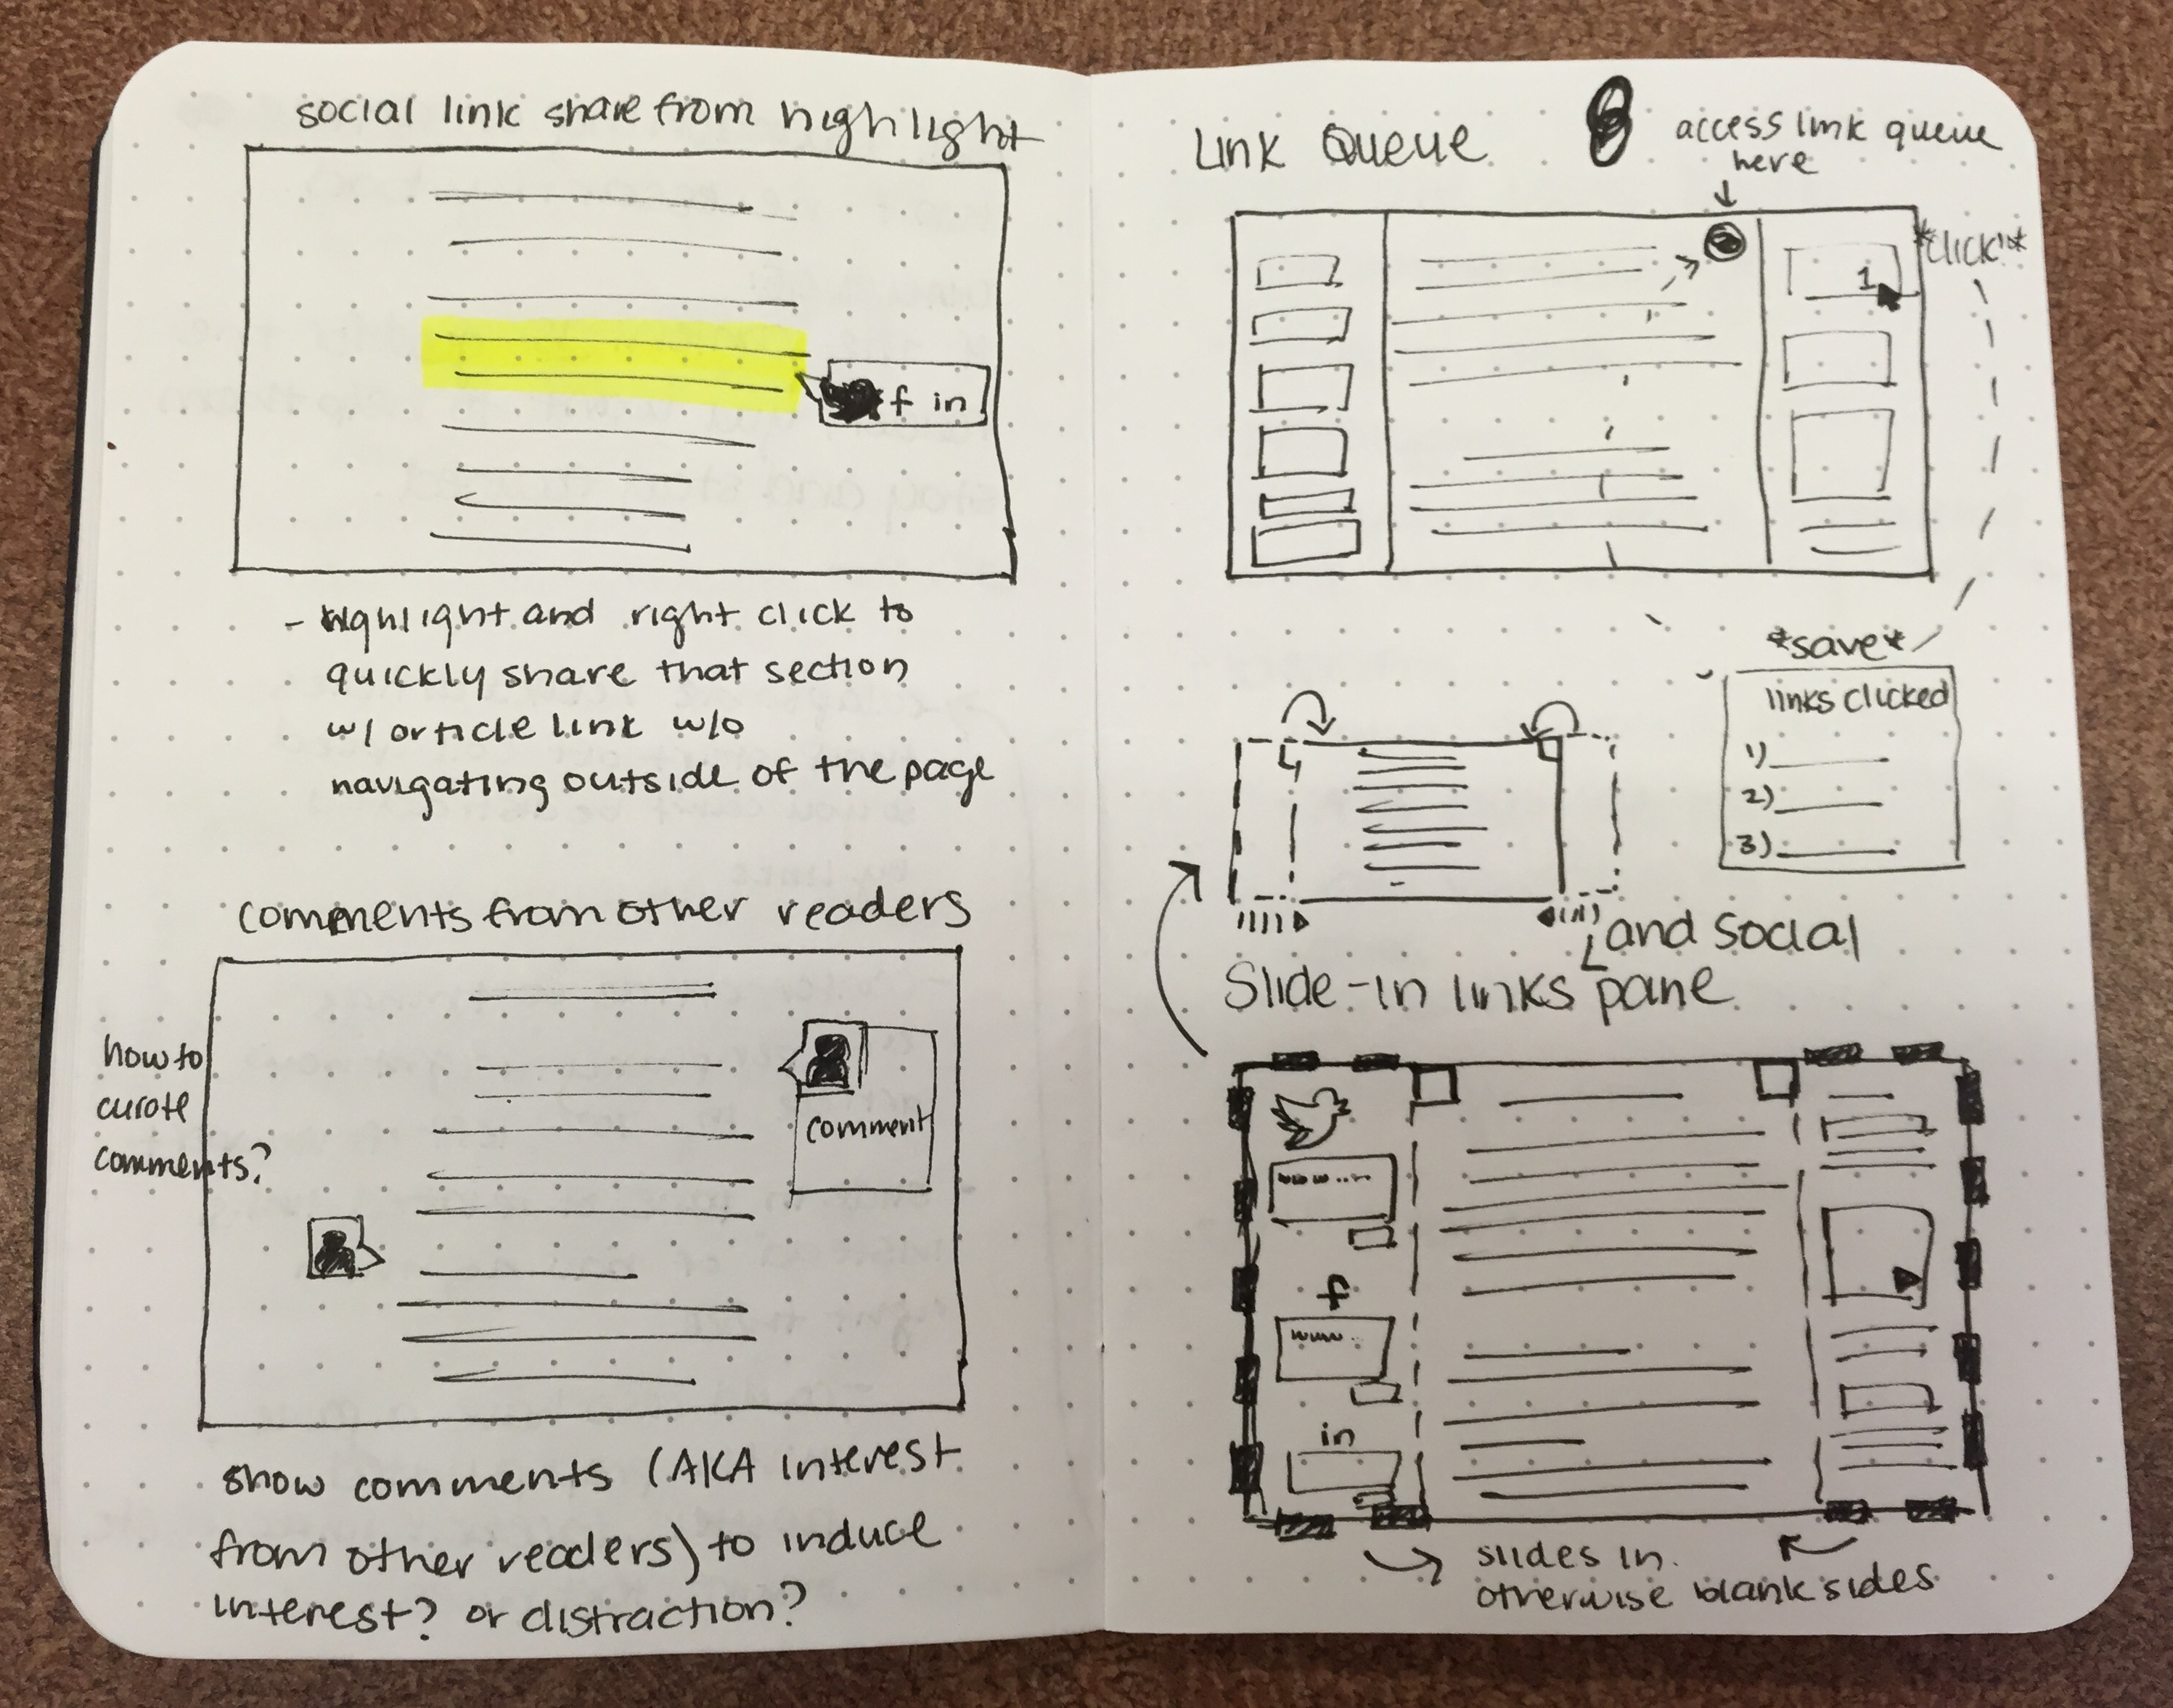 social link share from highlight
f in
- highlight and right click to
quickly share that section
w/ article link w/o
navigating outside of the page
comments from other readers
how to
curate
comments?
comment
show comments (AKA interest
from other readers) to induce
interest? or distraction?
Link Queue
access link queue
here
*click!*
1
*save*
links clicked
1)
2)
3)
and social
Slide-in links pane
www...
f
www..
in
slides in.
otherwise blank sides